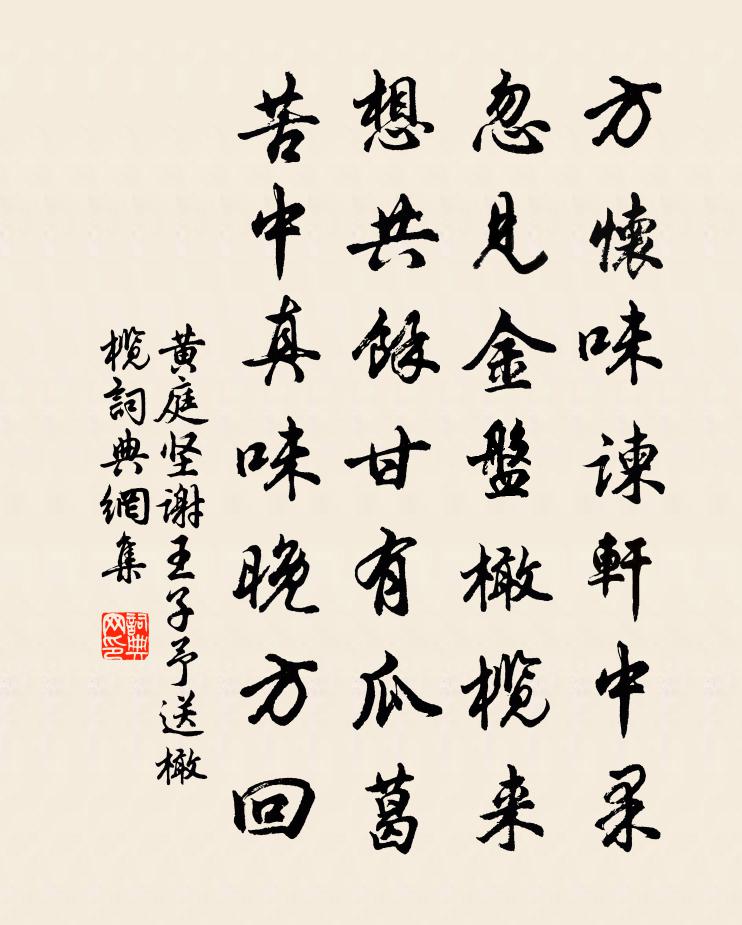 方懷味諫軒中果
忽見金盤橄榄来
想共餘甘有瓜葛
苦中真味晚方回
黄庭坚谢王子予送橄
榄詞典網集
詞典网印